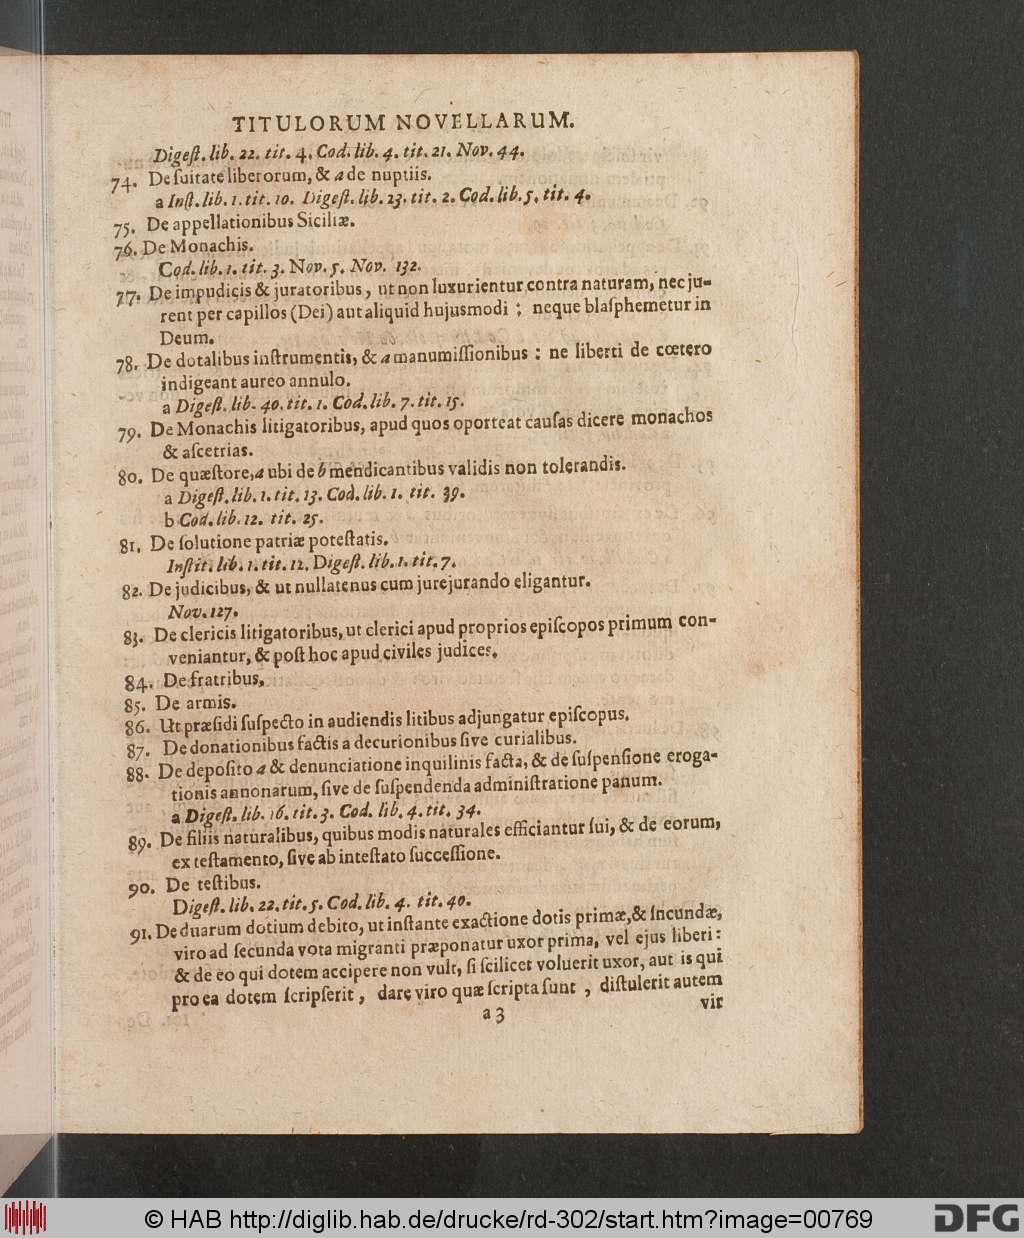 TITULORUM NOVELLARUM.
Digeſt. lib. 22. tit. 4. Cod. lib. 4. tit. 21. Nov. 44.
74. De ſuitate liberorum, & a de nuptiis.
a Inſt. lib. 1. tit. 10. Digeſt. lib. 23. tit. 2. Cod. lib. 5. tit. 4.
75. De appellationibus Siciliæ.
76. De Monachis.
Cod. lib. 1. tit. 3. Nov. 5. Nov. 132.
77. De impudicis & juratoribus, ut non luxurientur contra naturam, nec ju-
rent per capillos (Dei) aut aliquid hujusmodi ; neque blaſphemetur in
Deum.
78. De dotalibus inſtrumentis, & a manumiſſionibus : ne liberti de cœtero
indigeant aureo annulo.
a Digeſt. lib. 40. tit. 1. Cod. lib. 7. tit. 15.
79. De Monachis litigatoribus, apud quos oporteat cauſas dicere monachos
& aſcetrias.
80. De quæſtore, a ubi de b mendicantibus validis non tolerandis.
a Digeſt. lib. 1. tit. 13. Cod. lib. 1. tit. 39.
b Cod. lib. 12. tit. 25.
81. De ſolutione patriæ poteſtatis.
Inſtit. lib. 1. tit. 12. Digeſt. lib. 1. tit. 7.
82. De judicibus, & ut nullatenus cum jurejurando eligantur.
Nov. 127.
83. De clericis litigatoribus, ut clerici apud proprios epiſcopos primum con-
veniantur, & poſt hoc apud civiles judices.
84. De fratribus.
85. De armis.
86. Ut præſidi ſuſpecto in audiendis litibus adjungatur epiſcopus.
87. De donationibus factis a decurionibus ſive curialibus.
88. De depoſito a & denunciatione inquilinis facta, & de ſuſpenſione eroga-
tionis annonarum, ſive de ſuſpendenda adminiſtratione panum.
a Digeſt. lib. 16. tit. 3. Cod. lib. 4. tit. 34.
89. De filiis naturalibus, quibus modis naturales efficiantur ſui, & de eorum,
ex teſtamento, ſive ab inteſtato ſucceſſione.
90. De teſtibus.
Digeſt. lib. 22. tit. 5. Cod. lib. 4. tit. 40.
91. De duarum dotium debito, ut inſtante exactione dotis primæ, & ſncundæ,
viro ad ſecunda vota migranti præponatur uxor prima, vel ejus liberi:
& de eo qui dotem accipere non vult, ſi ſcilicet voluerit uxor, aut is qui
pro ea dotem ſcripſerit, dare viro quæ ſcripta ſunt, diſtulerit autem
a 3 vir
© HAB http://diglib.hab.de/drucke/rd-302/start.htm?image=00769
DFG